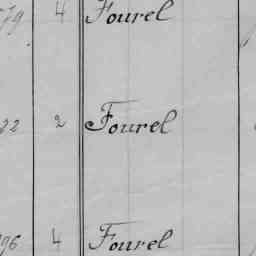 79 4 Fourel
22 2 Fourel
96 4 Fourel